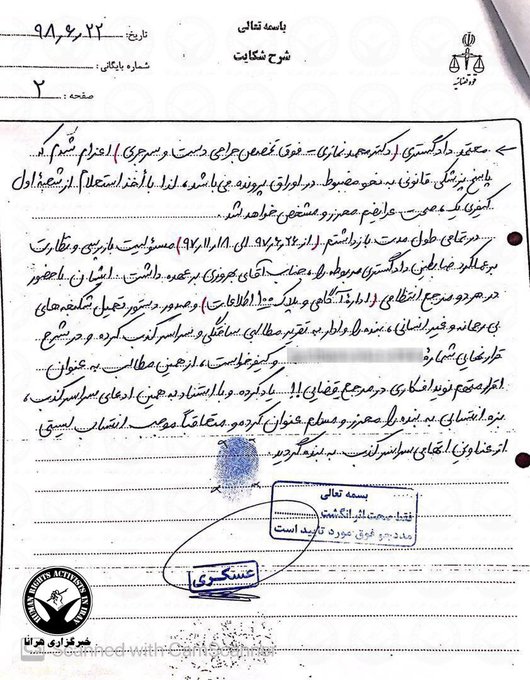 باسمه تعالی
شرح شکایت
تاریخ: ۹۸،۶،۲۲
شماره بایگانی:
صفحه: ۲
قوه قضائیه
معتمد دادگستری (دکتر محمد نمازی - فوق تخصص جراحی دست و سر جری) اعزام شدم که
پاسخ پزشکی قانونی به نحو مضبوط در اوراق پرونده می‌باشد، لذا با أخذ استعلام از شعبهٔ اول
کیفری یک، صحت عرایضم محرز و مشخص خواهد شد.
در تمامی طول مدت بازداشتم (از ۹۷،۶،۲۶ الی ۹۷،۱۱،۱۸) مسئولیت بازپرسی و نظارت
بر عملکرد ضابطین دادگستری مربوطه را، جناب آقای بهروزی بر عهده داشت. ایشان با حضور
در هر دو مرجع انتظامی (ادارهٔ آگاهی و پلاک ۱۰۰ اطلاعات) و صدور دستور تحمیل شکنجه‌های
بی‌رحمانه و غیر انسانی، بنده را وادار به تقریر مطالبی ساختگی و سراسر کذب کرده و در شرح
قرارنهایی شماره و کیفرخواست، از همین مطالب به عنوان
اقرار متهم نوید افکاری در مرجع قضایی!! یاد کرده و با استناد به همین ادعای سراسر کذب،
بزه انتسابی به بنده را محرز و مسلم عنوان کرده و متعاقباً موجب انتساب لیستی
از عناوین اتهامی سراسر کذب به بنده گردید.
بسمه تعالی
فقط صحت اثر انگشت
مددجو فوق مورد تایید است
عسکری
HUMAN RIGHTS ACTIVISTS IN IRAN
خبرگزاری هرانا
Scanned with CamScanner